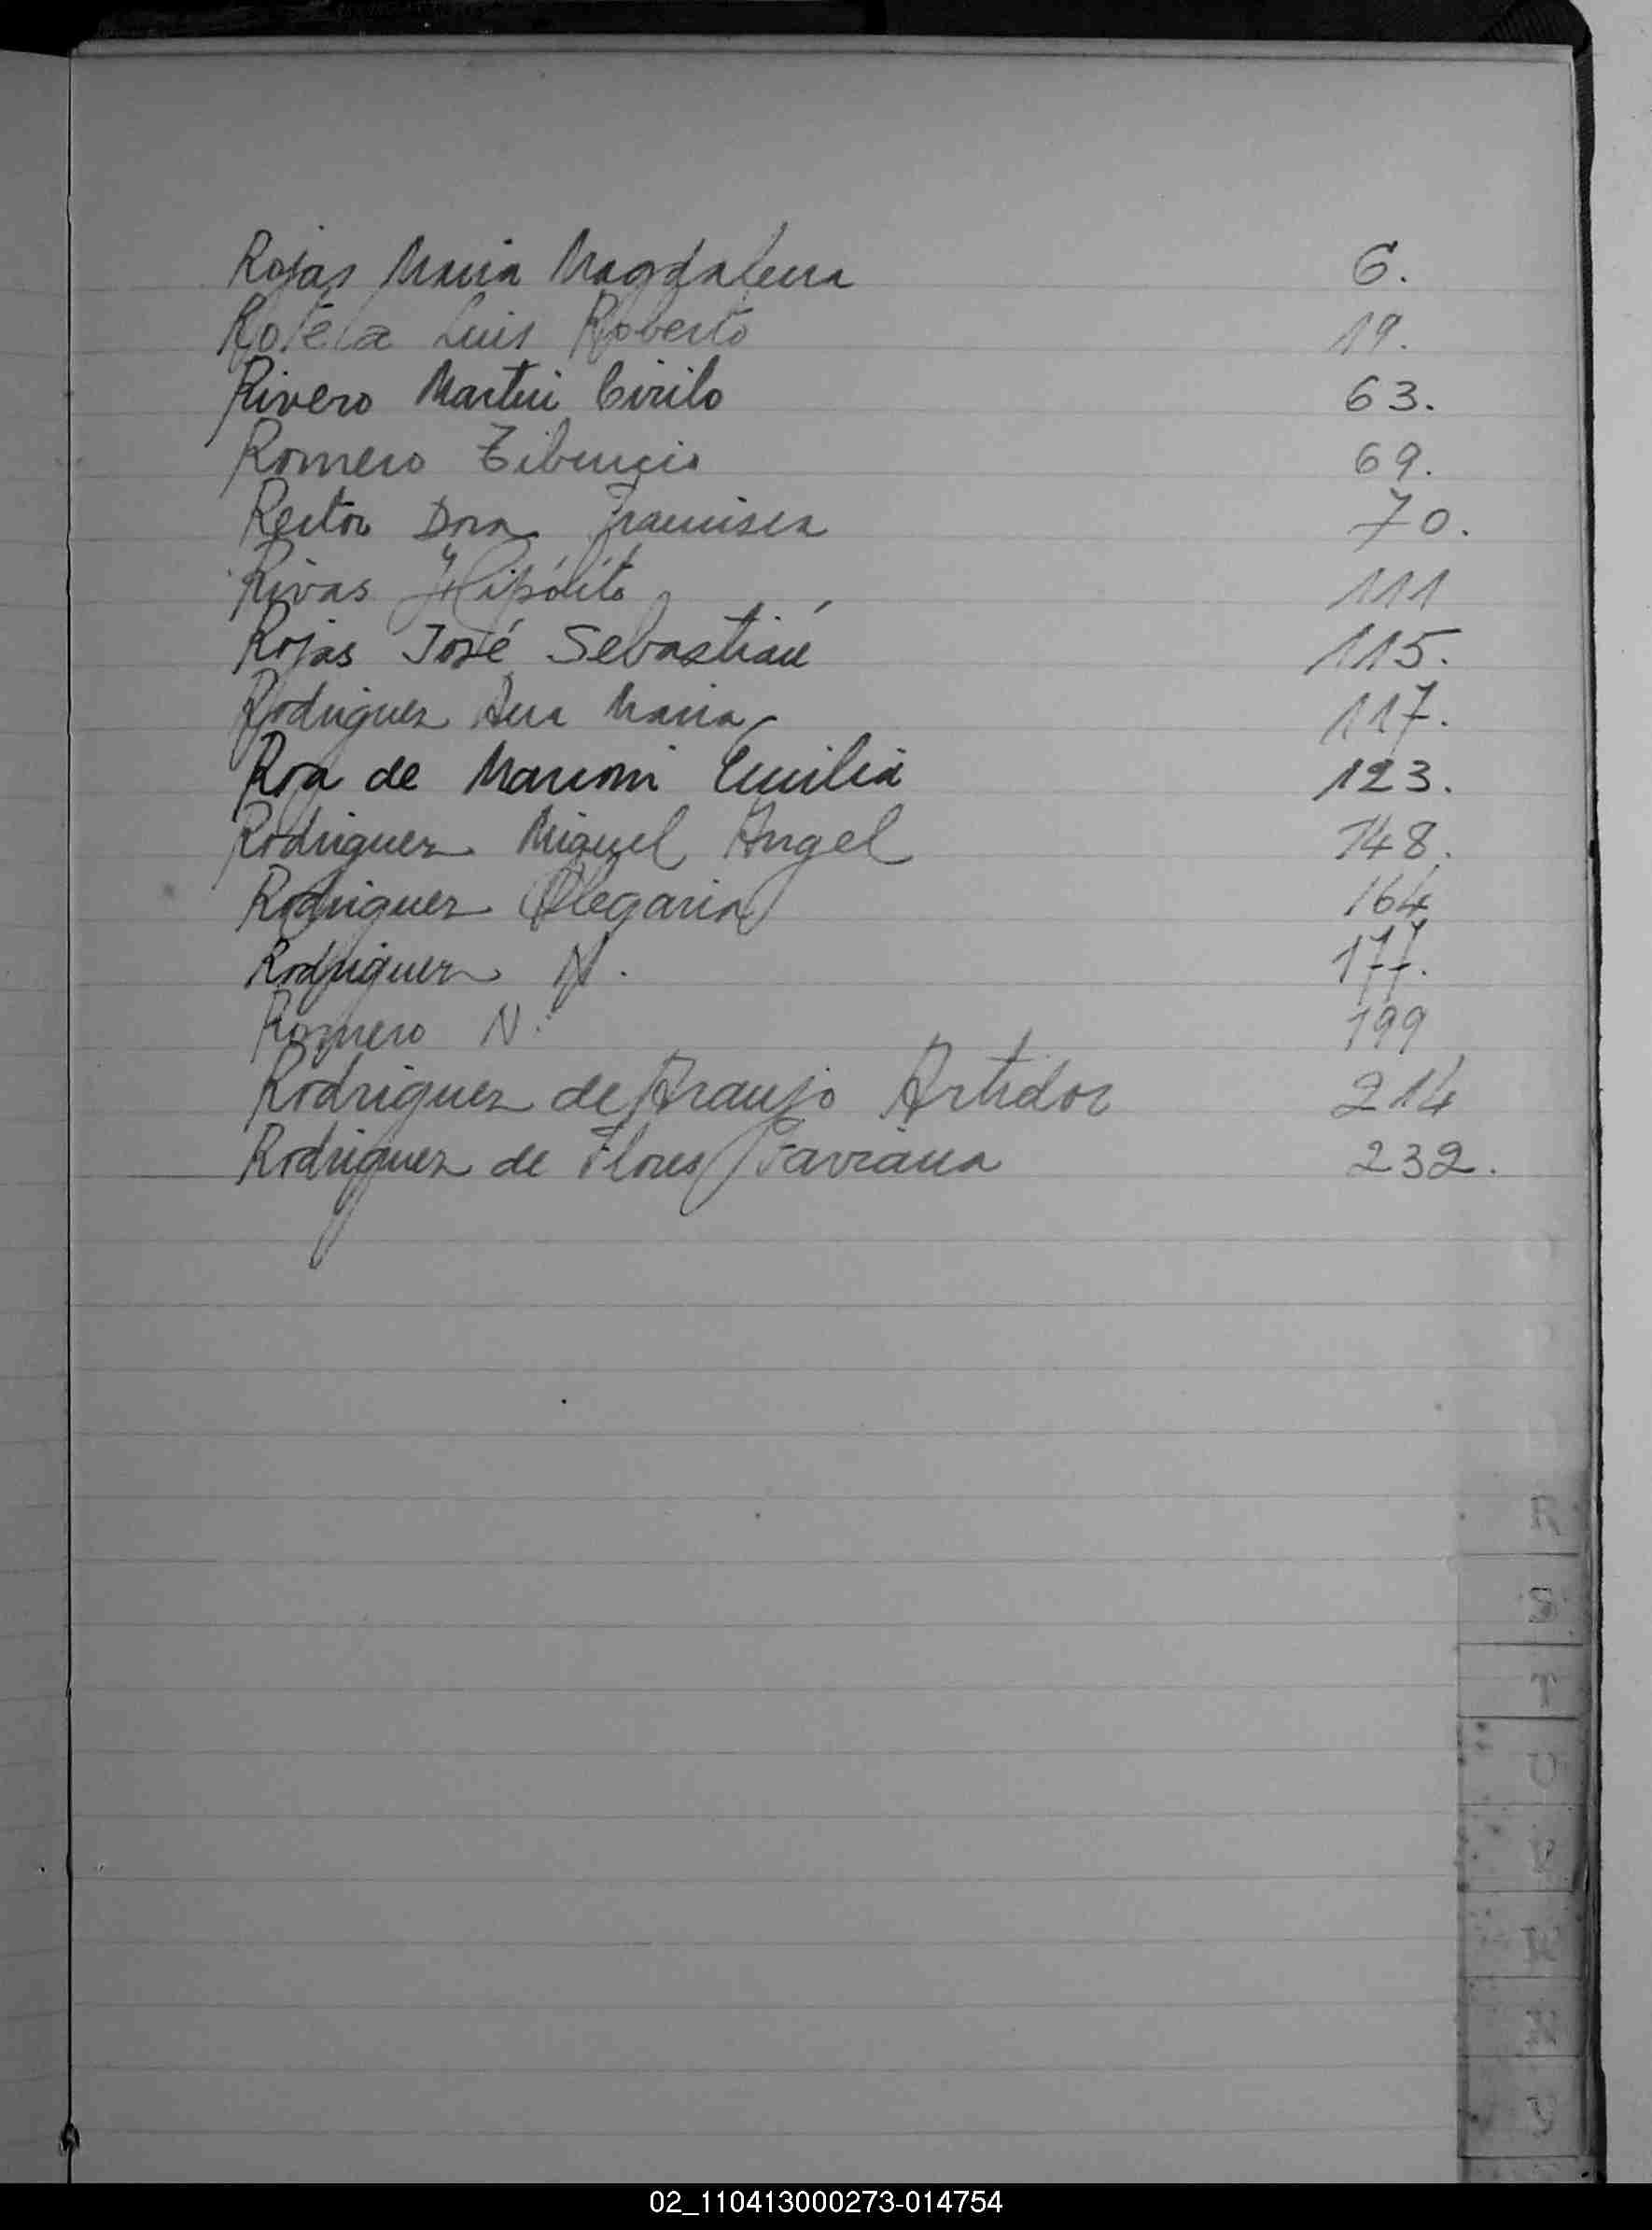 Rojas Maria Magdalena 6.
Rotela Luis Roberto 19.
Rivero Martin Cirilo 63.
Romero Tiburcio 69.
Dora Francisca 70.
Rivas Hipólito 111
Rojas José Sebastián 115.
Rodriguez Ana Maria 117.
Roa de Marconi Emilia 123.
Rodriguez Miguel Angel 148.
Rodriguez Olegaria 164
Rodriguez N. 177.
Romero N. 199
Rodriguez de Araujo Artidor 214
Rodriguez de Flores 232.
R
S
T
02_110413000273-014754